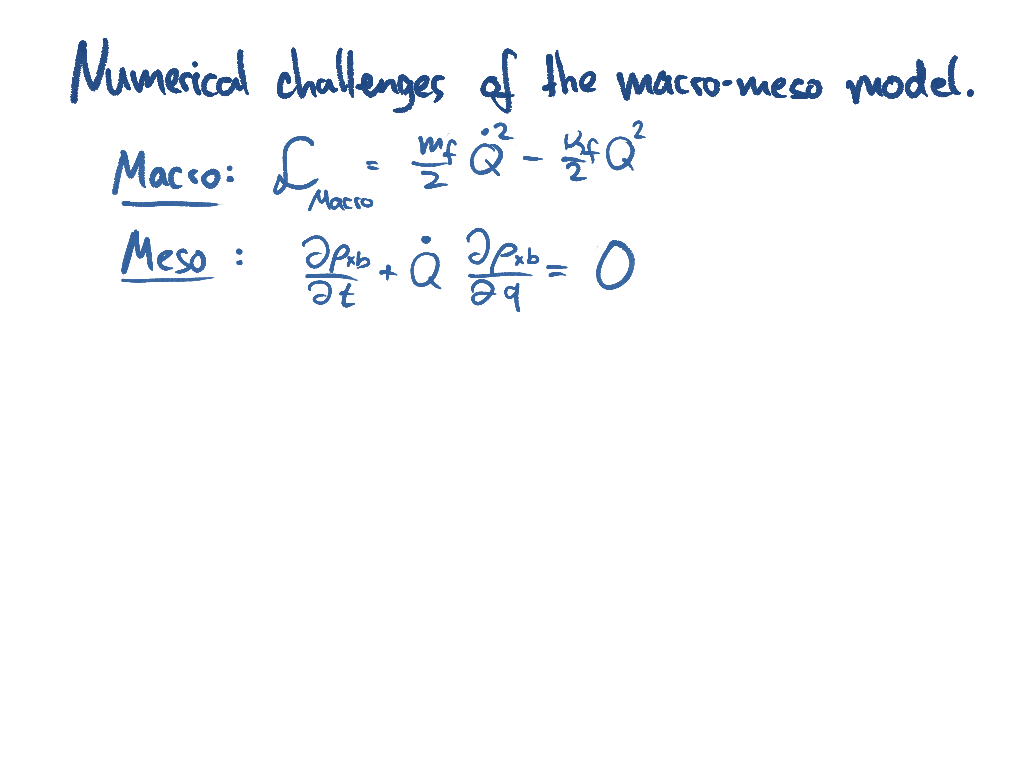 Numerical challenges of the macro-meso model.
Macro: ℒ_Macro = m_f/2 Q̇² - K_f/2 Q²
Meso: ∂ρ_xb/∂t + Q̇ ∂ρ_xb/∂q = 0